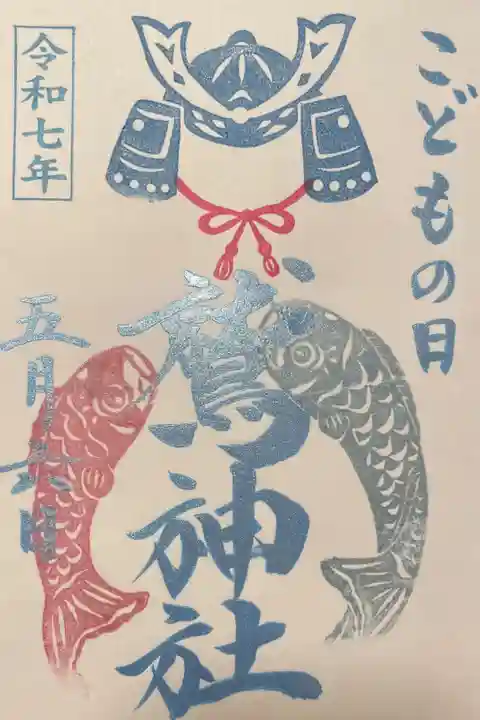 こどもの日
鷲神社
令和七年
五月日